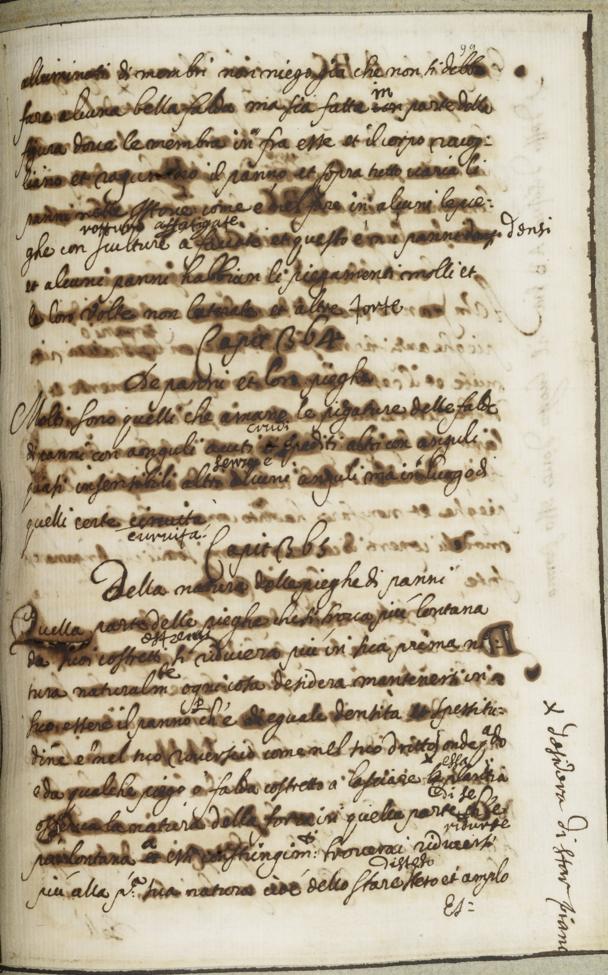 99
alluminati di membri non niego già che non si debba
fare alcuna bella falda ma sia fatta in parte della
figura dove le membra infra esse et il corpo racco-
gliano et ragunino il panno et sopra tutto varia li
panni nelle istorie come è nel fare in alcuni le pie-
rotture affacciate
ghe con sculture a facciate et questo è ne panni densi
et alcuni panni habbian li piegamenti molli et
le lor volte non laterate et altre torte
Capit. 364
De panni et loro pieghe
Molti sono quelli che amano le pigature delle falde
crudi
di panni con anguli acuti et spediti altri con anguli
senza
quasi insensibili altri alcuni anguli ma in luogo di
quelli certe
curvità
Capit. 365
Della natura delle pieghe di panni
Quella parte delle pieghe che si trova più lontana
estremi
da suoi costretti si riducerà più in sua prima na-
tura naturalmte ogni cosa desidera mantenersi in
suo essere il panno che è di eguale densità et spessitu-
dine nel suo roverscio come nel suo dritto onde
da qualche piego o falda costretto a lasciare
essa
osserva la natura della forza in quella parte di se
ridurse
più lontana a essi constringimti troverai
disteso
più alla pa sua natura cioè dello stare et amplo
Es:
x desidera di star piano